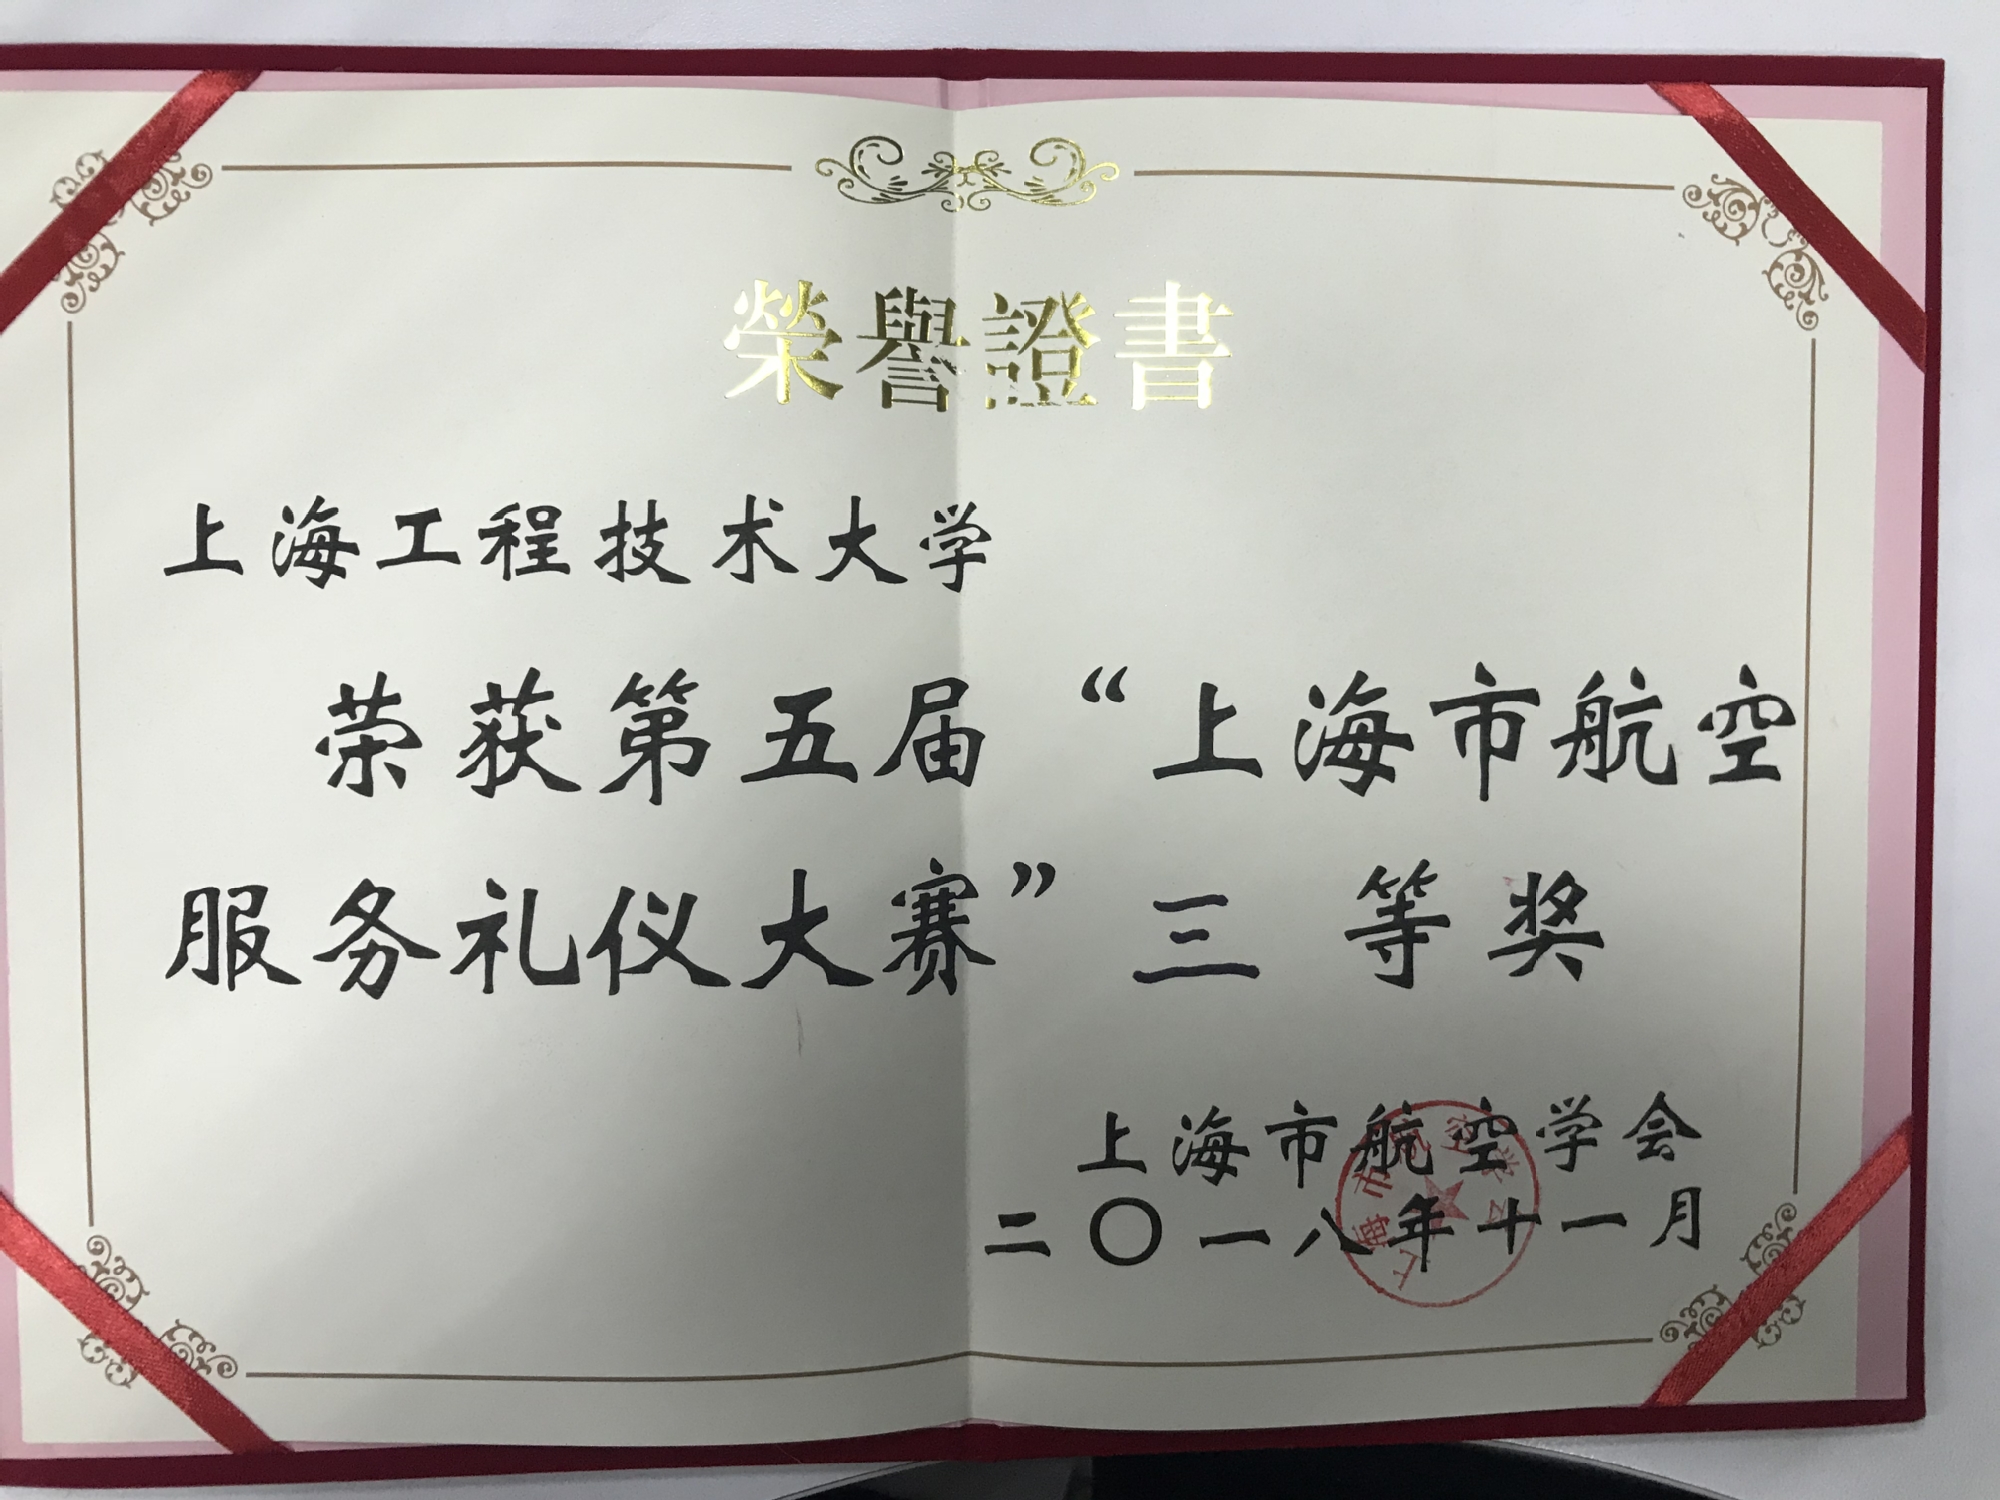 榮譽證書
上海工程技术大学
荣获第五届“上海市航空
服务礼仪大赛”三等奖
上海市航空学会
二〇一八年十一月
上海市航空学会